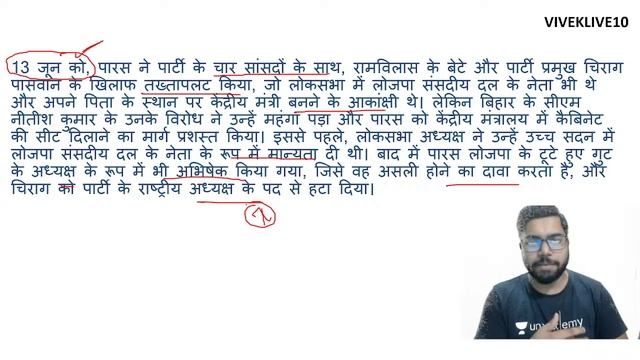 VIVEKLIVE10
13 जून को, पारस ने पार्टी के चार सांसदों के साथ, रामविलास के बेटे और पार्टी प्रमुख चिराग
पासवान के खिलाफ तख्तापलट किया, जो लोकसभा में लोजपा संसदीय दल के नेता भी थे
और अपने पिता के स्थान पर केंद्रीय मंत्री बनने के आकांक्षी थे। लेकिन बिहार के सीएम
नीतीश कुमार के उनके विरोध ने उन्हें महंगा पड़ा और पारस को केंद्रीय मंत्रालय में कैबिनेट
की सीट दिलाने का मार्ग प्रशस्त किया। इससे पहले, लोकसभा अध्यक्ष ने उन्हें उच्च सदन में
लोजपा संसदीय दल के नेता के रूप में मान्यता दी थी। बाद में पारस लोजपा के टूटे हुए गुट
के अध्यक्ष के रूप में भी अभिषेक किया गया, जिसे वह असली होने का दावा करता है, और
चिराग को पार्टी के राष्ट्रीय अध्यक्ष के पद से हटा दिया।
unacademy